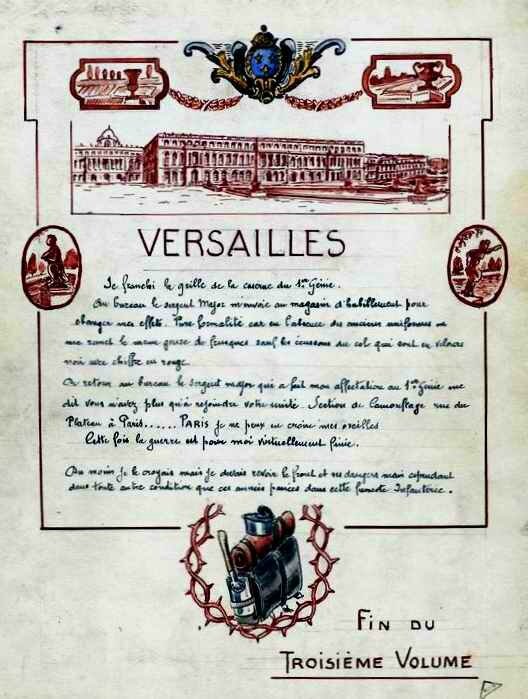 VERSAILLES
Je franchi la grille de la caserne du 1er Génie.
Au bureau le sergent Major m'envoie au magasin d'habillement pour
changer mes effets. Pure formalité car en l'absence des anciens uniformes on
me remet le même genre de frusques sauf les écussons du col qui sont en velours
noir avec chiffre en rouge
De retour au bureau le sergent major qui a fait mon affectation au 1er Génie me
dit vous n'avez plus qu'à rejoindre votre unité. Section de Camouflage rue du
Plateau à Paris...... PARIS je ne peux en croire mes oreilles
Cette fois la guerre est pour moi virtuellement finie.
Du moins je le croyais mais je devais revoir le front et ses dangers mais cependant
dans toute autre condition que ces années passées dans cette funeste Infanterie.
FIN DU
TROISIÈME VOLUME